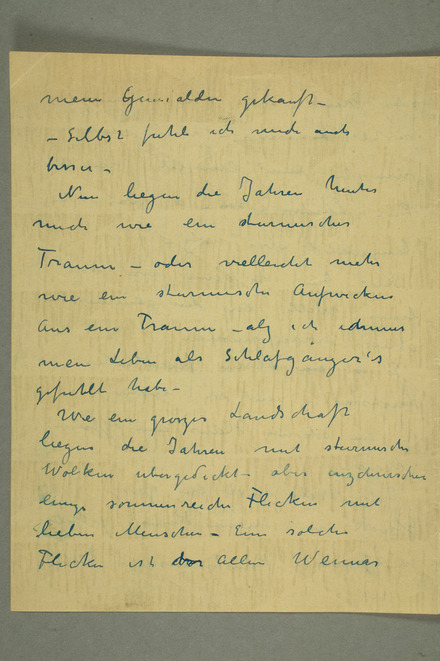 mein Gemälden gekauft –
– Selbst fühle ich mich auch
besser –
Nun liegen die Jahren hinter
mich wie ein stürmischer
Traum – oder vielleicht mehr
wie ein stürmische Aufwecken
aus ein Traum – als ich immer
mein Leben als Schlafgänger's
gefühlt habe –
Wie ein grosses Landschaft
liegen die Jahren mit stürmische
Wolken übergedeckt – aber inzwischen
einige sonnenreiche Flecken mit
lieben Menschen – Ein solche
Flecken ist vor allem Weimar